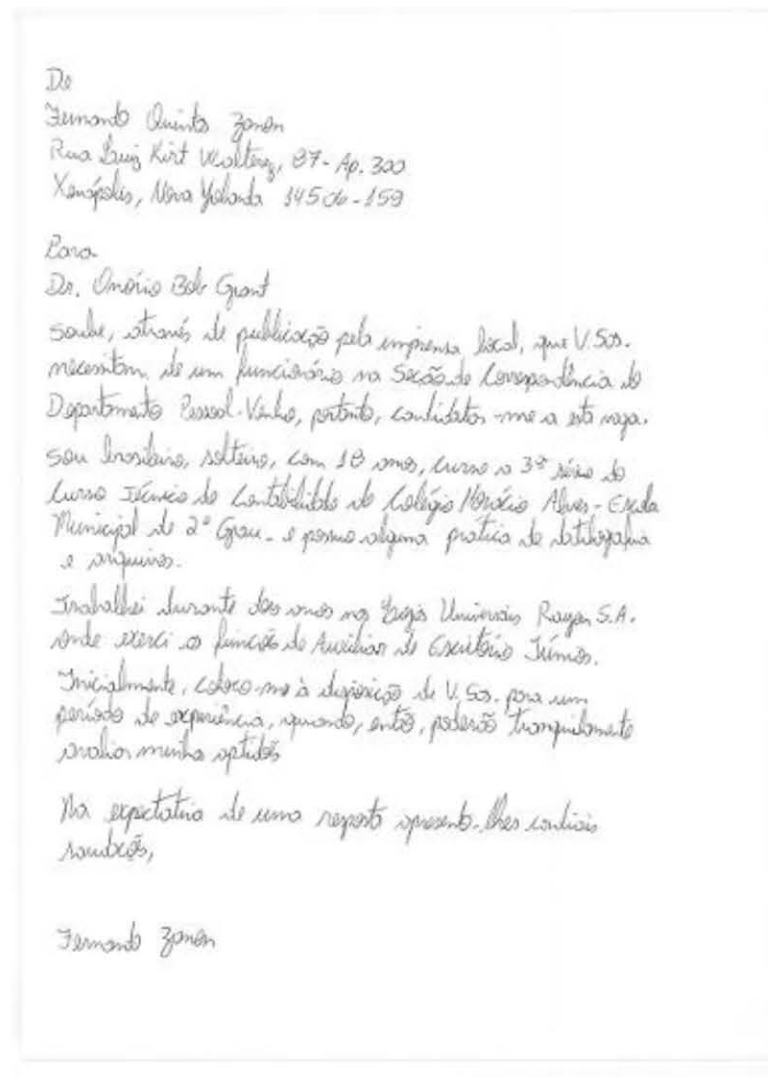 De
Fernando Quinto Zanon
Rua Luiz Kirt Walterez, 87 - Ap. 300
Xenópolis, Nova Yolanda 145 - 159
Para
Dr. Onório Bob Grant
Soube, através de publicação pela imprensa local, que V.Sas.
necessitam de um funcionário na Seção de Correspondência do
Departamento Pessoal. Venho, portanto, candidatar-me a esta vaga.
Sou brasileiro, solteiro, com 18 anos, curso a 3ª série do
Curso Técnico de Contabilidade do Colégio Horácio Alves - Escola
Municipal de 2º Grau - e possuo alguma prática de datilografia
e arquivos.
Trabalhei durante dois anos nas Universais S.A.
onde exerci a função de Auxiliar de Escritório Júnior.
Inicialmente, coloco-me à disposição de V.Sas. para um
período de experiência, quando, então, poderão tranquilamente
avaliar minha aptidão
Na expectativa de uma reposta apresento-lhes cordiais
saudações,
Fernando Zanon